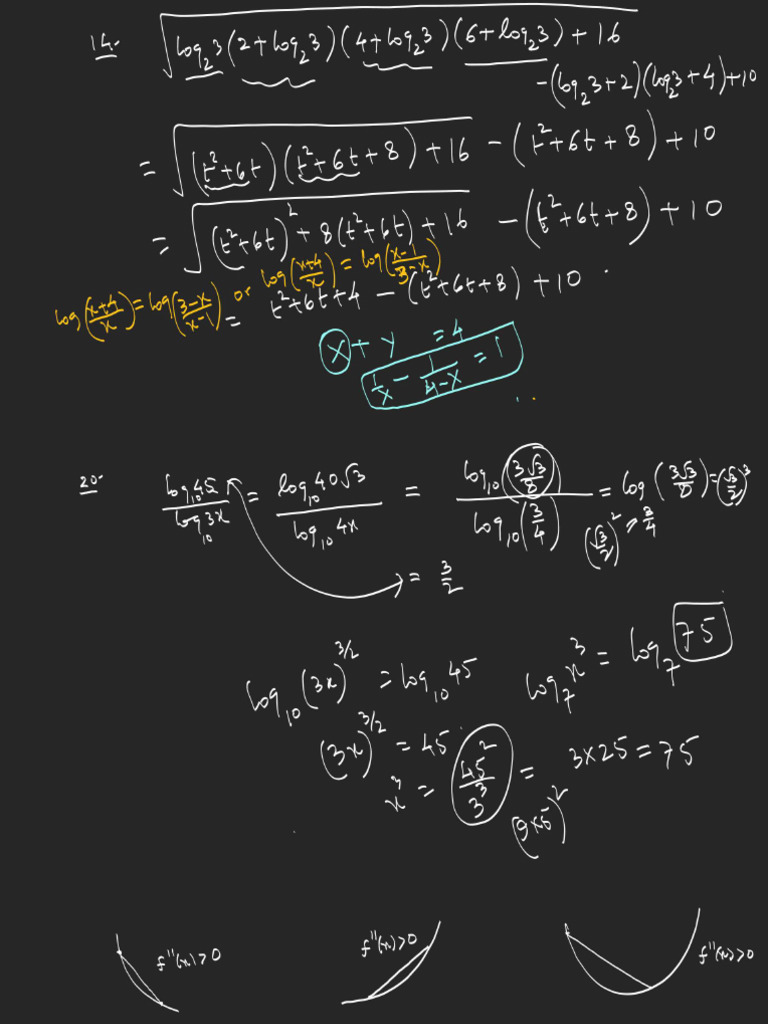 14. √(log₂3(2+log₂3)(4+log₂3)(6+log₂3)+16)
-(log₂3+2)(log₂3+4)+10
= √((t²+6t)(t²+6t+8)+16) - (t²+6t+8)+10
= √((t²+6t)²+8(t²+6t)+16) - (t²+6t+8)+10
log((x+4)/x) = log((3-x)/(x-1)) or log((x+4)/x) = log((x-1)/(3-x))
= t²+6t+4 - (t²+6t+8)+10.
x+y = 4
1/x - 1/(4-x) = 1
20. log₁₀45/log₁₀3x = log₁₀40√3/log₁₀4x = log₁₀(3√3/8)/log₁₀(3/4) = log(3√3/8) = (√3/2)³
(√3/2)² = 3/4
= 3/2
log₁₀(3x)^(3/2) = log₁₀45
log₇x³ = log₇75
(3x)^(3/2) = 45
x³ = 45²/3³ = 3×25 = 75
(9×5)²
f''(x)>0
f''(x)>0
f''(x)>0